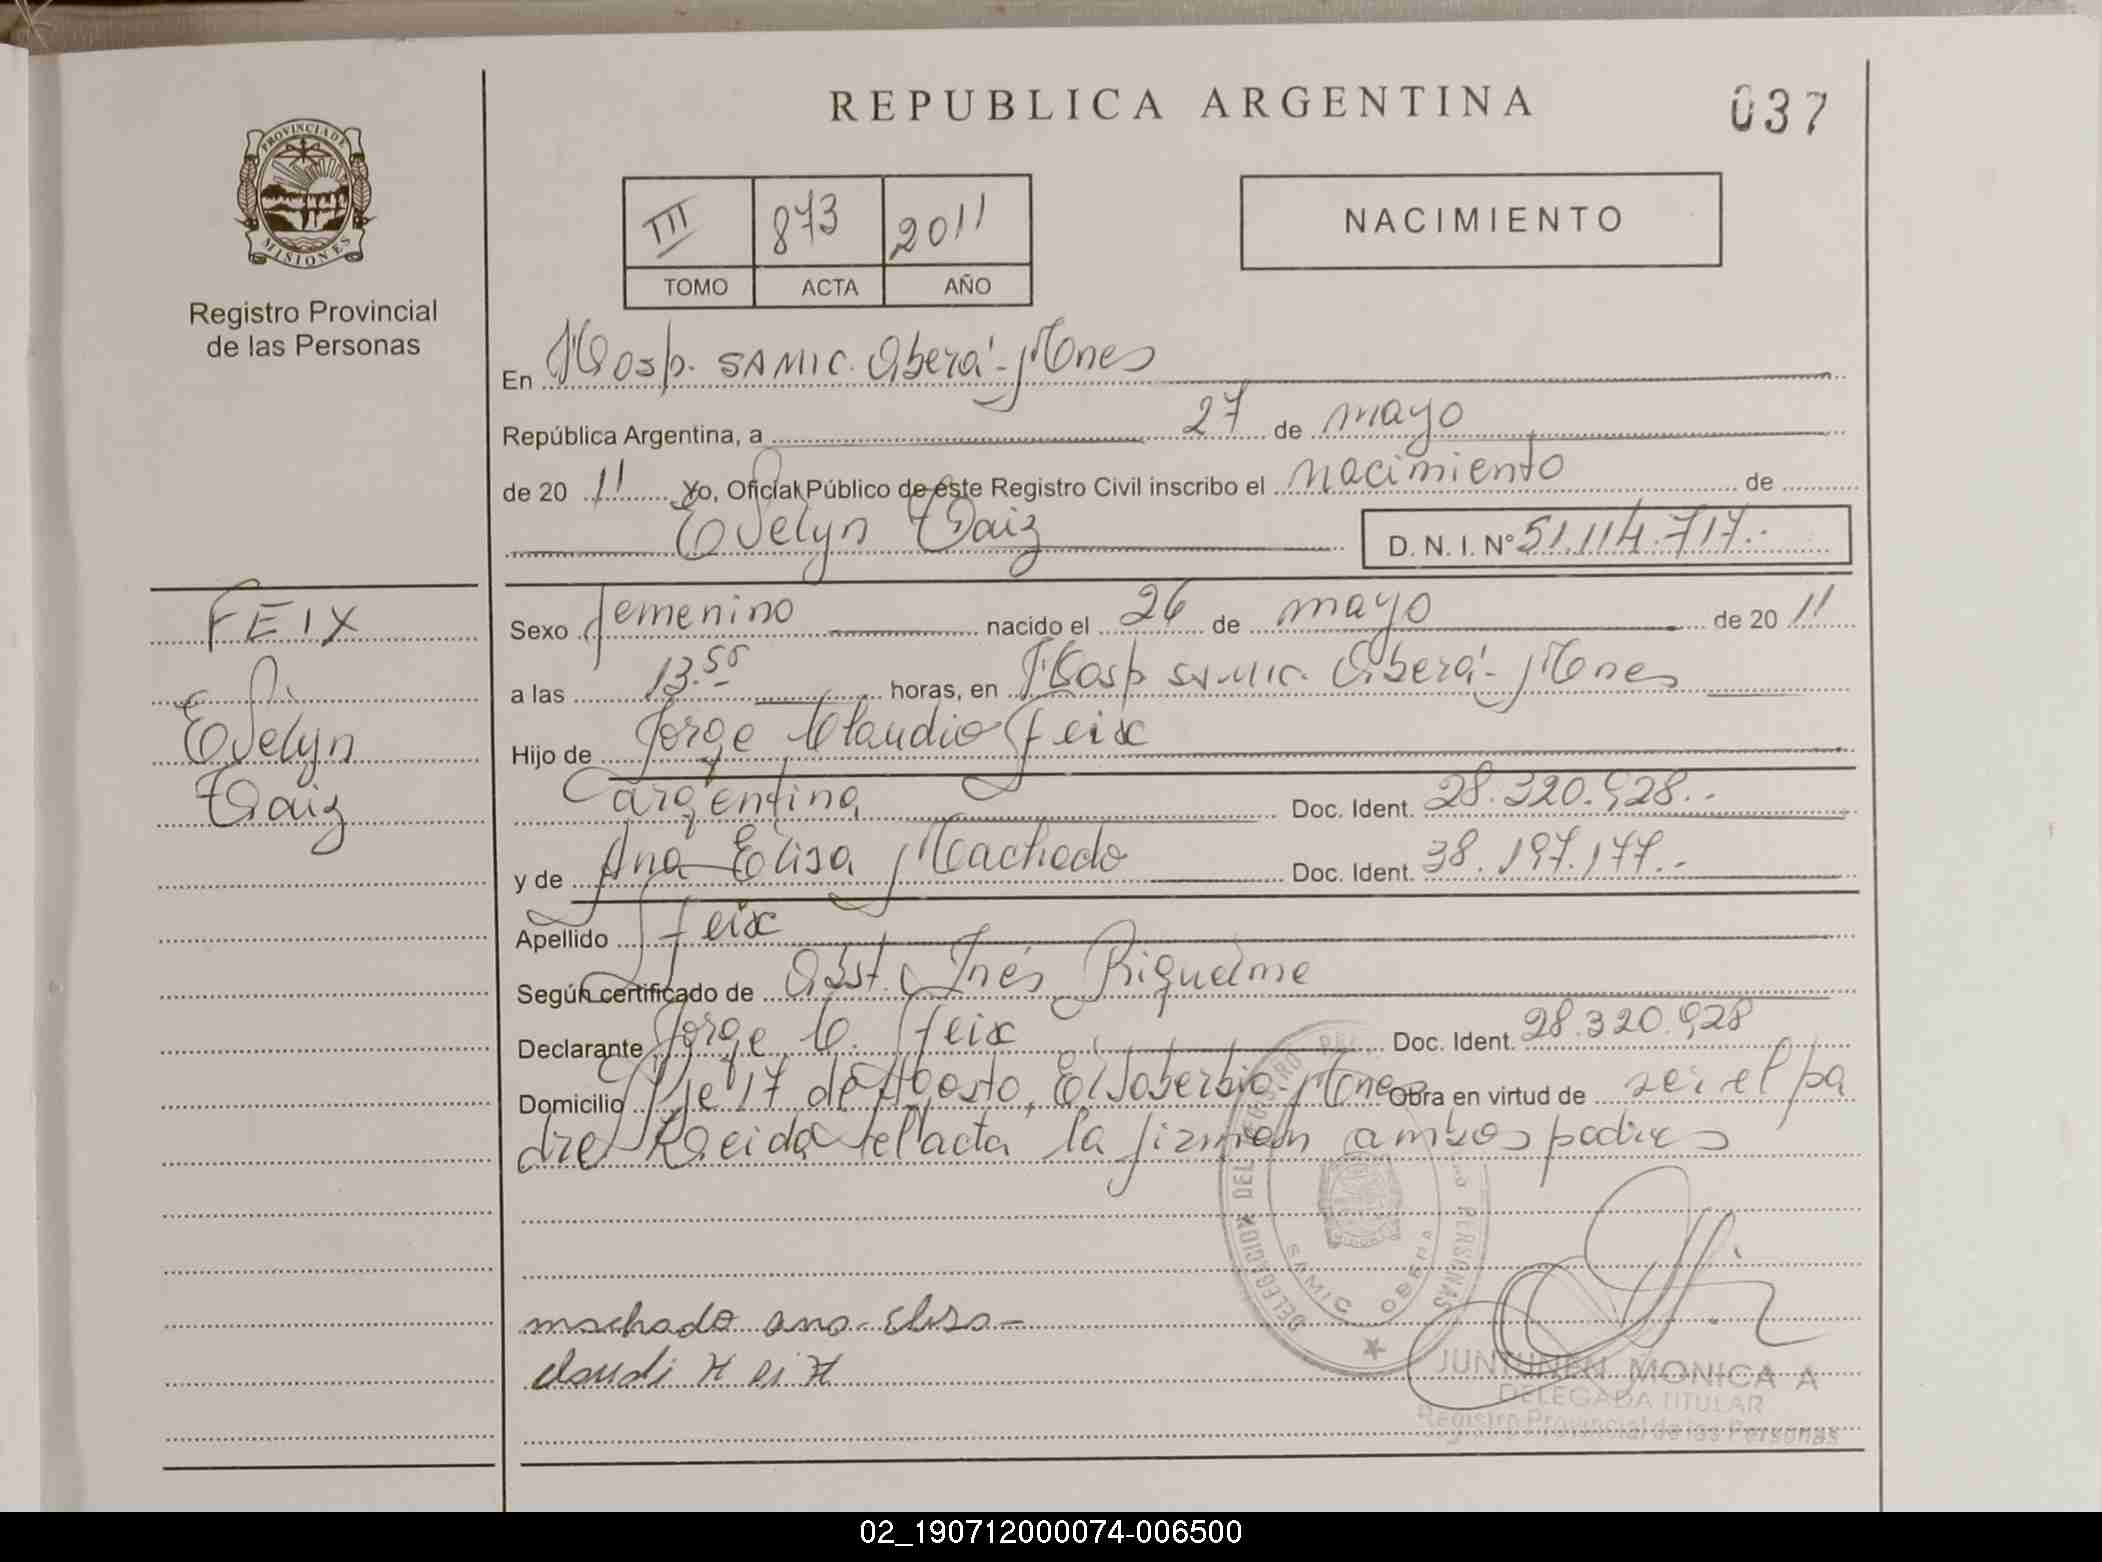 REPUBLICA ARGENTINA
037
PROVINCIA DE
MISIONES
Registro Provincial
de las Personas
NACIMIENTO
III 873 2011
TOMO ACTA AÑO
En Hosp. SAMIC. Oberá - Mnes
República Argentina, a 27 de mayo
de 20 11 Yo, Oficial Público de este Registro Civil inscribo el nacimiento de
Evelyn Taiz D. N. I. Nº 51.114.717.-
FEIX
Evelyn
Taiz
Sexo femenino nacido el 26 de mayo de 20 11
a las 13.55 horas, en Hosp SAMIC. Oberá - Mnes
Hijo de Jorge Claudio Feix
argentina Doc. Ident. 28.320.928.-
y de Ana Elisa Machado Doc. Ident. 38.197.177.-
Apellido Feix
Según certificado de Obst. Inés Riquelme
Declarante Jorge C. Feix Doc. Ident. 28.320.928
Domicilio Pje 17 de Agosto, El Soberbio. Mnes Obra en virtud de ser el pa
dre Leida el acta la firman ambos padres
DELEGACION DEL REGISTRO PERSONAS
SAMIC OBERA
machado ana elisa -
claudi
JUNTUNEN MONICA A
DELEGADA TITULAR
Registro Provincial de las Personas
02_190712000074-006500